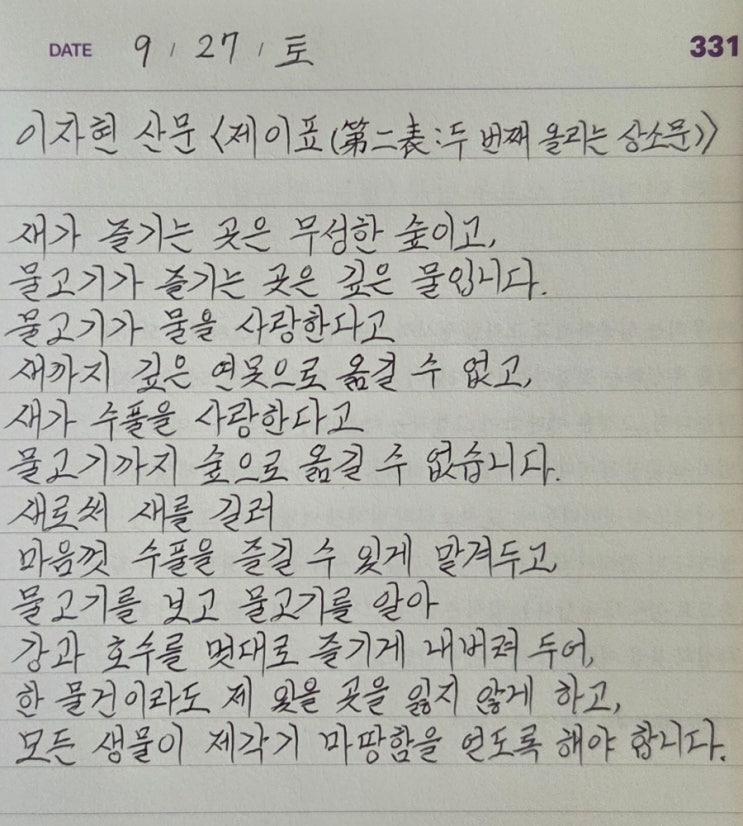 DATE 9 / 27 / 토 331
이자현 산문 〈제이표(第二表:두 번째 올리는 상소문)〉
새가 즐기는 곳은 무성한 숲이고,
물고기가 즐기는 곳은 깊은 물입니다.
물고기가 물을 사랑한다고
새까지 깊은 연못으로 옮길 수 없고,
새가 수풀을 사랑한다고
물고기까지 숲으로 옮길 수 없습니다.
새로써 새를 길러
마음껏 수풀을 즐길 수 있게 맡겨두고,
물고기를 보고 물고기를 알아
강과 호수를 멋대로 즐기게 내버려 두어,
한 물건이라도 제 있을 곳을 잃지 않게 하고,
모든 생물이 제각기 마땅함을 얻도록 해야 합니다.